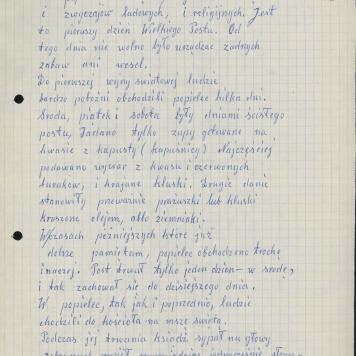 i zwyczajów ludowych, i religijnych. Jest
to pierwszy dzień Wielkiego Postu. Od
tego dnia nie wolno było urządzać żadnych
zabaw ani wesel.
Do pierwszej wojny światowej ludzie
bardzo pobożni obchodzili popielec kilka dni.
Środa, piątek i sobota były dniami ścisłego
postu. Jadano tylko zupy gotowane na
kwasie z kapusty (kapuśnicy) Najczęściej
podawano wywar z kwasu i czerwonych
buraków, i krajane kluski. Drugie danie
stanowiły przeważnie prażuszki lub kluski
kraszone olejem, albo ziemniaki.
W czasach późniejszych które już
dobrze pamiętam, popielec obchodzono trochę
inaczej. Post trwał tylko jeden dzień - w środę,
i tak zachował się do dzisiejszego dnia.
W popielec, tak jak i poprzednio, ludzie
chodzili do kościoła na mszę świętą.
Podczas jej trwania ksiądz sypał na głowy